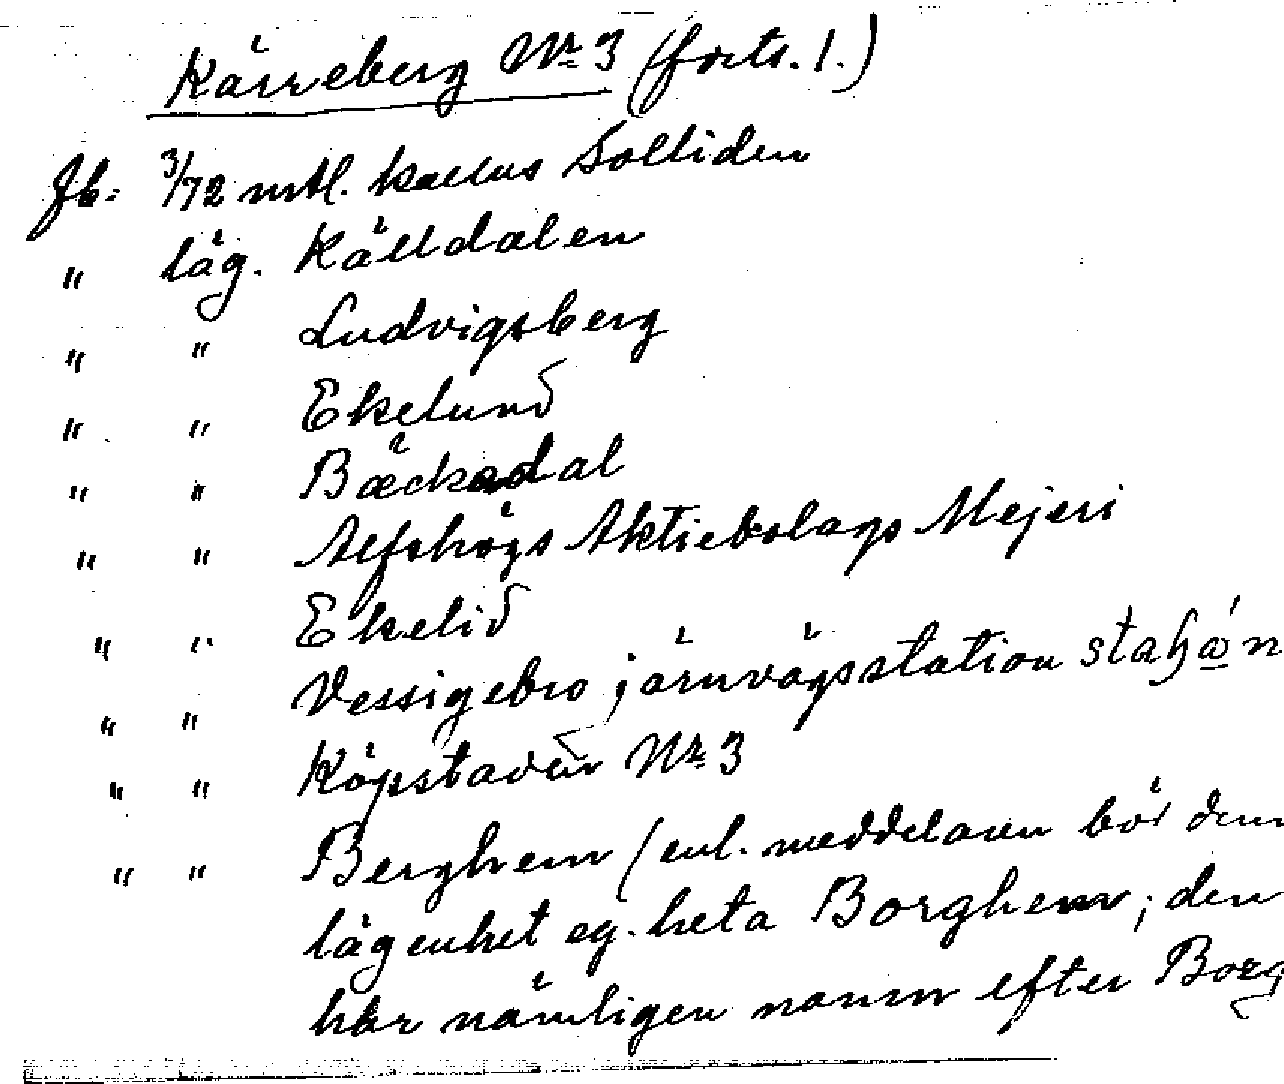 Kärreberg Nr 3 (forts. 1.)
Jb. 3/72 mtl. kallas Solliden
" läg. Källdalen
" " Ludvigsberg
" " Ekelund
" " Bäcksdal
" " Alfshögs Aktiebolags Mejeri
" " Ekelid
" " Vessigebro järnvägsstation
" " Köpstaden Nr 3
" " Berghem (enl. meddelaren bör den
lägenhet eg. heta Borghem; den
här nämligen namn efter Borg